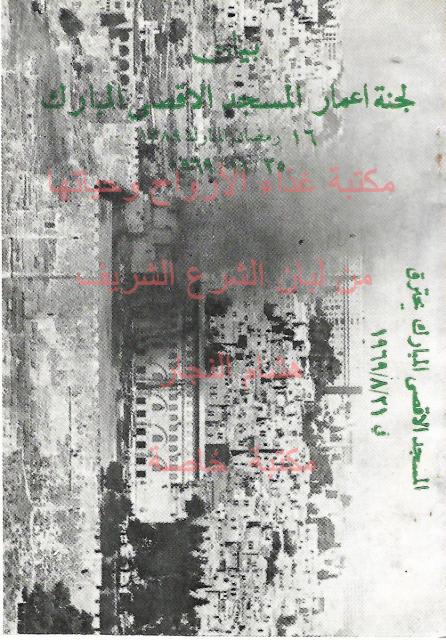 بيان
لجنة اعمار المسجد الاقصى المبارك
١٦ رمضان المبارك ١٣٨٩
مكتبة غذاء الأرواح وحياتها
من لبان الشرع الشريف
هشام النجار
مكتبة خاصة
المسجد الاقصى المبارك يحترق
في ١٩٦٩/٨/٢١